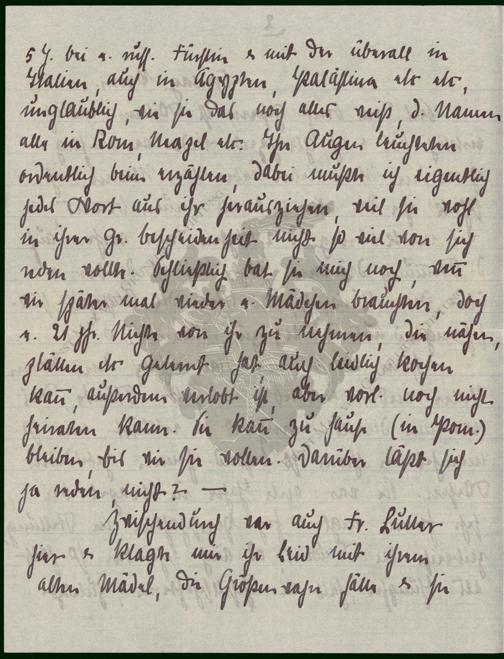 5 J. bei e. russ. Fürstin & mit der überall in
Italien, auch in Ägypten, Palästina etc etc,
unglaublich, wie sie das noch alles weiß, d. Namen
alle in Rom, Neapel etc. Ihre Augen leuchteten
ordentlich beim erzählen, dabei mußte ich eigentlich
jedes Wort aus ihr herausziehen, weil sie wohl
in ihrer Gr. bescheidenheit nicht so viel von sich
reden wollte. Schließlich bat sie mich noch, wenn
wir später mal wieder e. Mädchen brauchten, doch
e. 21 jhr. Nichte von ihr zu nehmen, die nähen,
plätten etc gelernt hat, auch leidlich kochen
kann, außerdem verlobt ist, aber vorl. noch nicht
heiraten kann. Sie kann zu Hause (in Pom.)
bleiben, bis wir sie wollen. Darüber läßt sich
ja reden nicht? —
Zwischendurch war auch Fr. Lutter
hier & klagte mir ihr Leid mit ihrem
alten Mädel, die Größenwahn hätte & sie